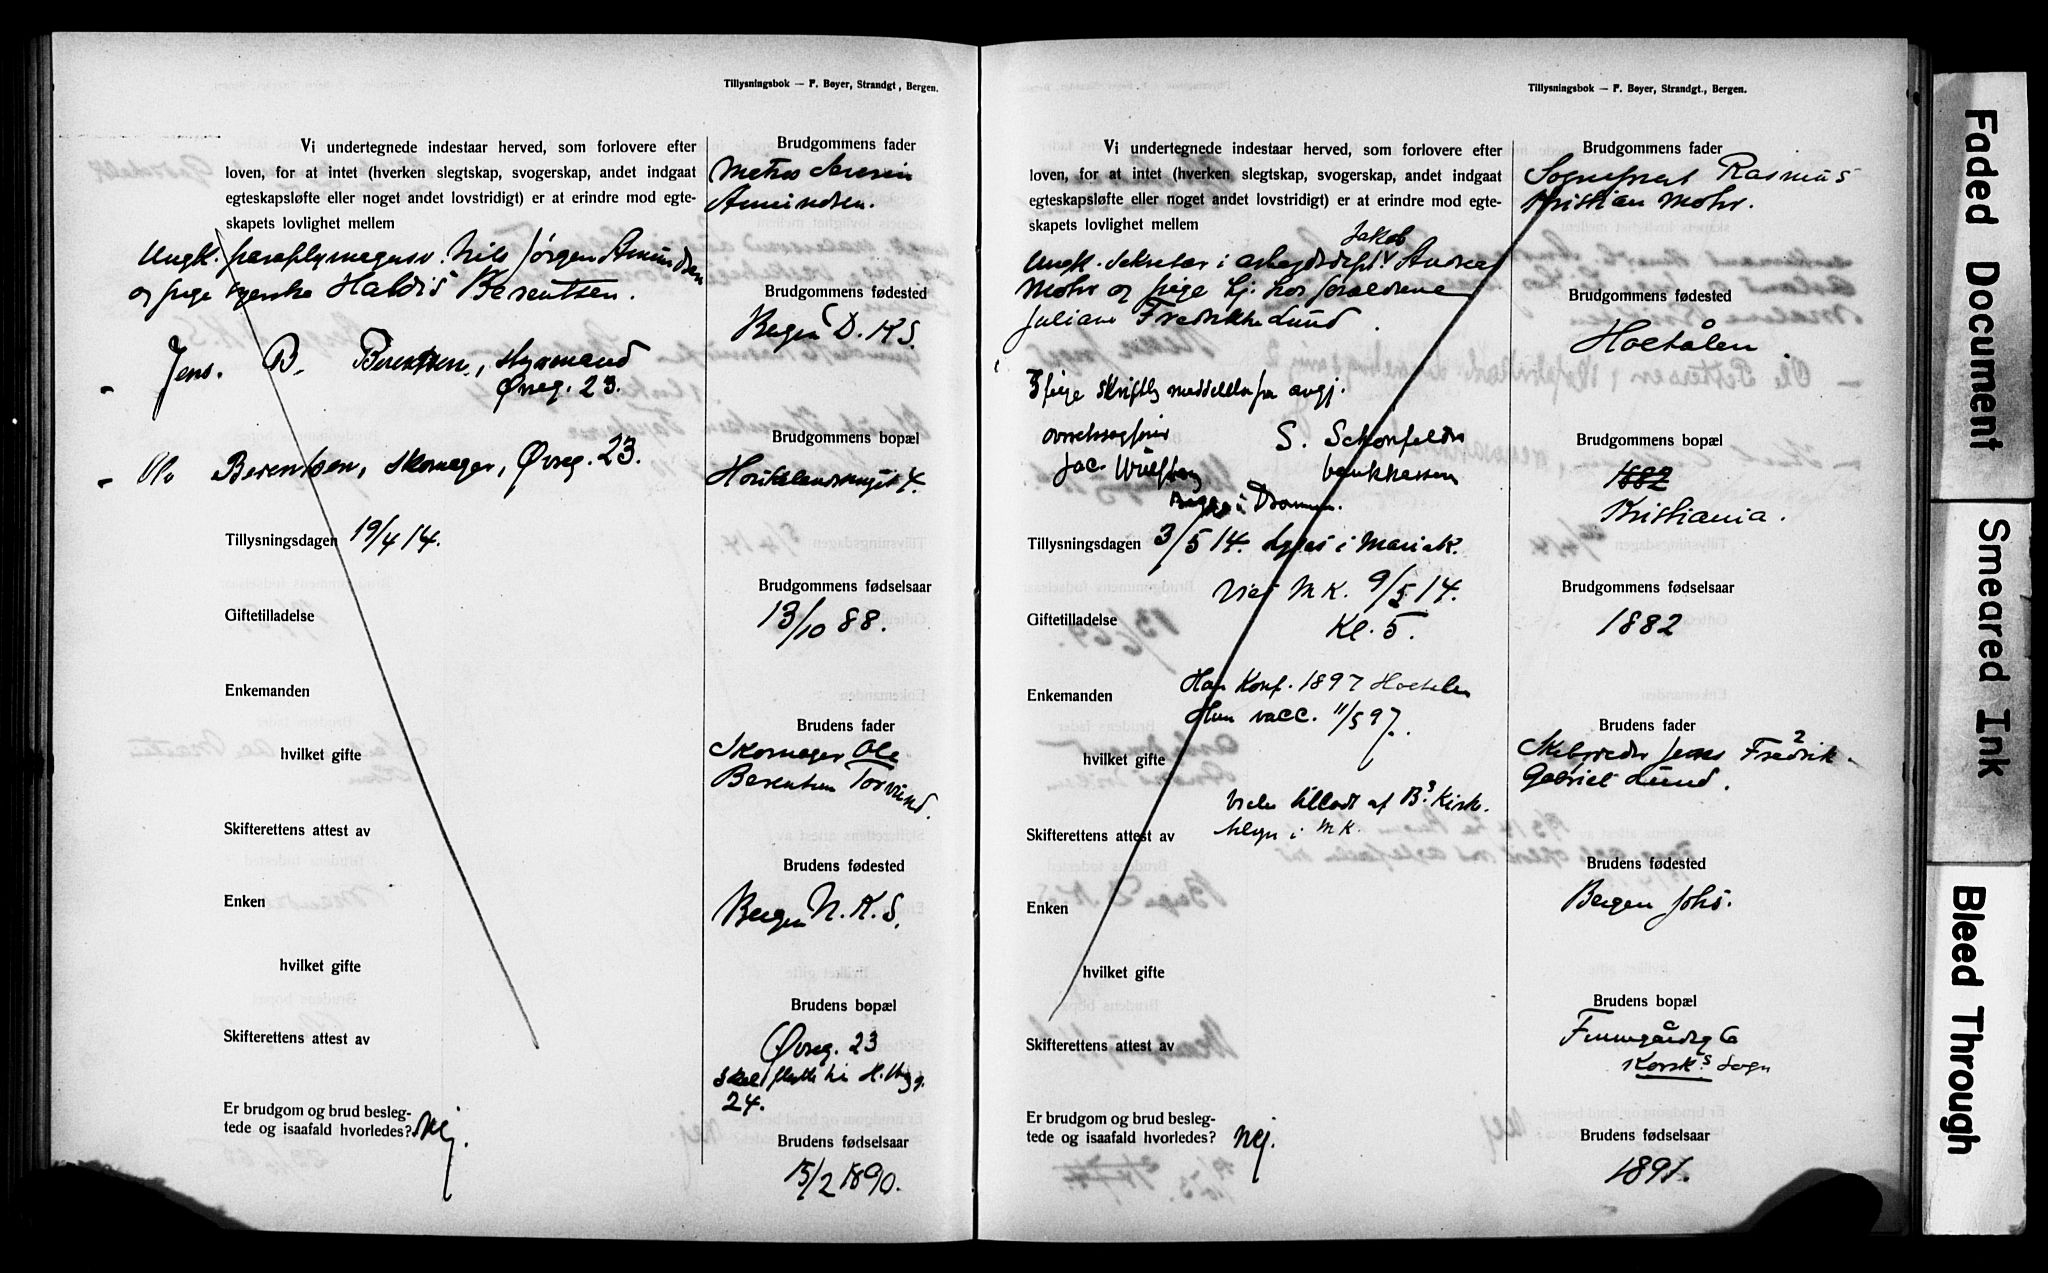 Tillysningsbok — F. Bøyer, Strandgt, Bergen.
Vi undertegnede indestaar herved, som forlovere efter
loven, for at intet (hverken slegtskap, svogerskap, andet indgaat
egteskapsløfte eller noget andet lovstridigt) er at erindre mod egte-
skapets lovlighet mellem
Ungk. paraplymagersv. Nils Jørgen Amundsen
og pige syerske Haldis Berentsen.
Jens. B. Berentsen, Styrmand
Øvreg. 23.
Ole Berentsen, Skomager, Øvreg. 23.
Tillysningsdagen 19/4 14.
Giftetilladelse
Enkemanden
hvilket gifte
Skifterettens attest av
Enken
hvilket gifte
Skifterettens attest av
Er brudgom og brud besleg-
tede og isaafald hvorledes? Nej.
Brudgommens fader
Severin
Amundsen.
Brudgommens fødested
Bergen D. K S.
Brudgommens bopæl
4.
Brudgommens fødselsaar
13/10 88.
Brudens fader
Skomager Ole
Berentsen Torvund.
Brudens fødested
Bergen N. K. S.
Brudens bopæl
Øvreg. 23
Skal flytte til
24.
Brudens fødselsaar
15/2 1890.
Tillysningsbok — F. Bøyer, Strandgt., Bergen.
Vi undertegnede indestaar herved, som forlovere efter
loven, for at intet (hverken slegtskap, svogerskap, andet indgaat
egteskapsløfte eller noget andet lovstridigt) er at erindre mod egte-
skapets lovlighet mellem
Jakob
Ungk. Sekretær i arbeidsdept. Andreas
Mohr og pige hj. hos forældrene
Juliane Fredrikke Lund.
ifølge skriftlig meddelelse fra angj.
overretssagfører S.
Jac.
Begge i Drammen.
Tillysningsdagen 3/5 14. Lyses i Mariak.
Viet M K. 9/5 14.
Giftetilladelse Kl. 5.
Han Konf. 1897 Hoetalen
Enkemanden
Hun vacc. 11/5 97.
hvilket gifte
Vielse tilladt af B.s Kirke-
Skifterettens attest av
tilsyn i M K.
Enken
hvilket gifte
Skifterettens attest av
Er brudgom og brud besleg-
tede og isaafald hvorledes? Nej.
Brudgommens fader
Sogneprest Rasmus
Kristian Mohr.
Brudgommens fødested
Hoetålen
Brudgommens bopæl
1882
Kristiania.
Brudgommens fødselsaar
1882
Brudens fader
Skibsreder Jens Fredrik
Gabriel Lund.
Brudens fødested
Bergen Johs.
Brudens bopæl
Finnegårdsg 6
Korsk.s Sogn
Brudens fødselsaar
1891.
Faded Document
Smeared Ink
Bleed Through